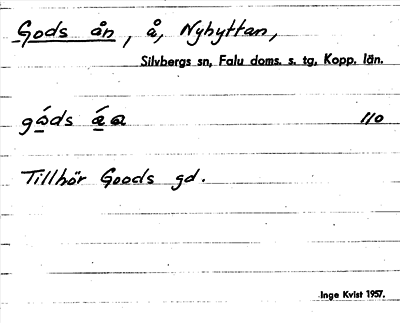 Gods ån, å, Nyhyttan,
Silvbergs sn, Falu doms. s. tg, Kopp. län.
110
Tillhör Goods gd.
Inge Kvist 1957.